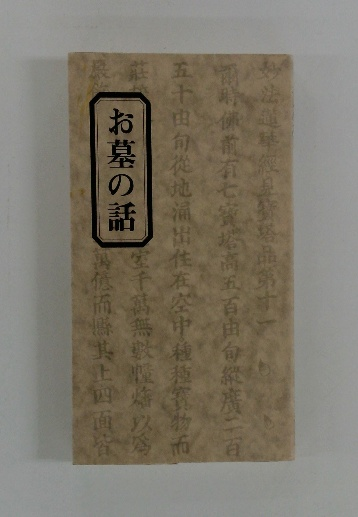 お墓の話
妙法蓮華經見寳塔品第十一
爾時佛前有七寳塔高五百由旬縱廣二百
五十由旬從地涌出住在空中種種寳物而
莊
室千萬無數幢幡以爲
萬億而懸其上四面皆